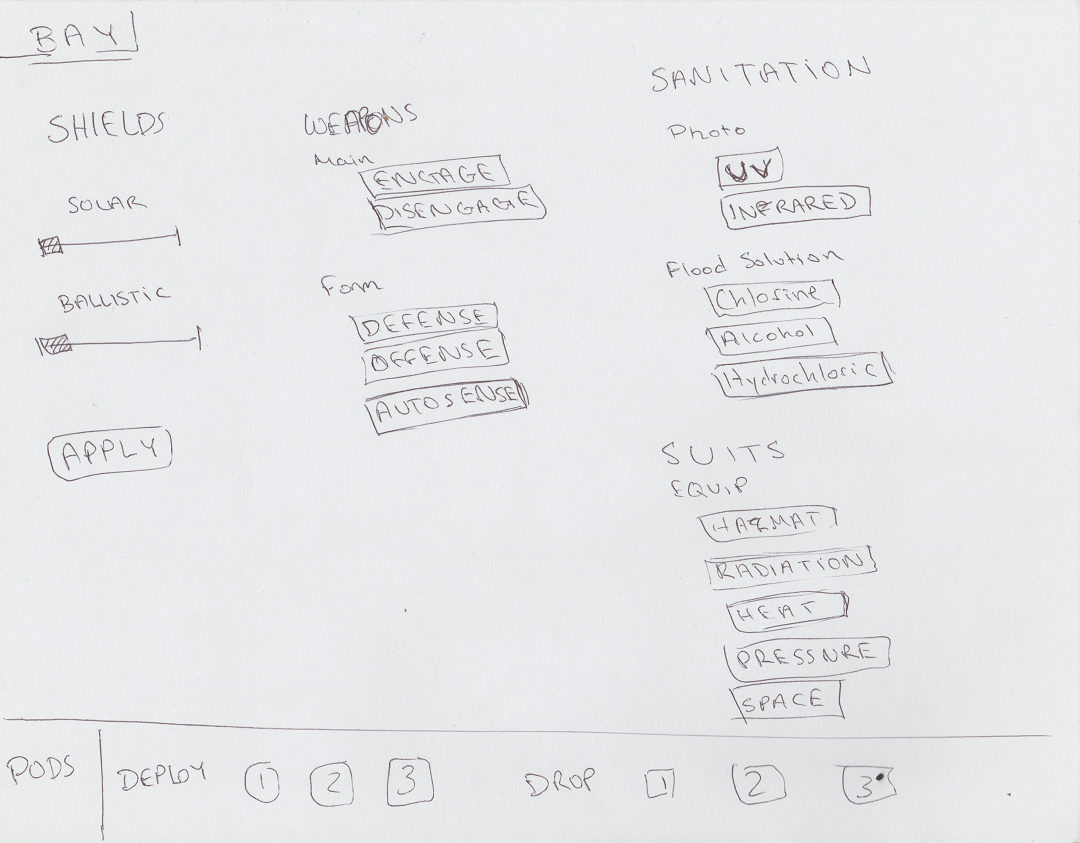 BAY
SHIELDS
SOLAR
BALLISTIC
APPLY
WEAPONS
Main
ENGAGE
DISENGAGE
Form
DEFENSE
OFFENSE
AUTOSENSE
SANITATION
Photo
UV
INFRARED
Flood Solution
Chlorine
Alcohol
Hydrochloric
SUITS
EQUIP
HAZMAT
RADIATION
HEAT
PRESSURE
SPACE
PODS DEPLOY 1 2 3 DROP 1 2 3